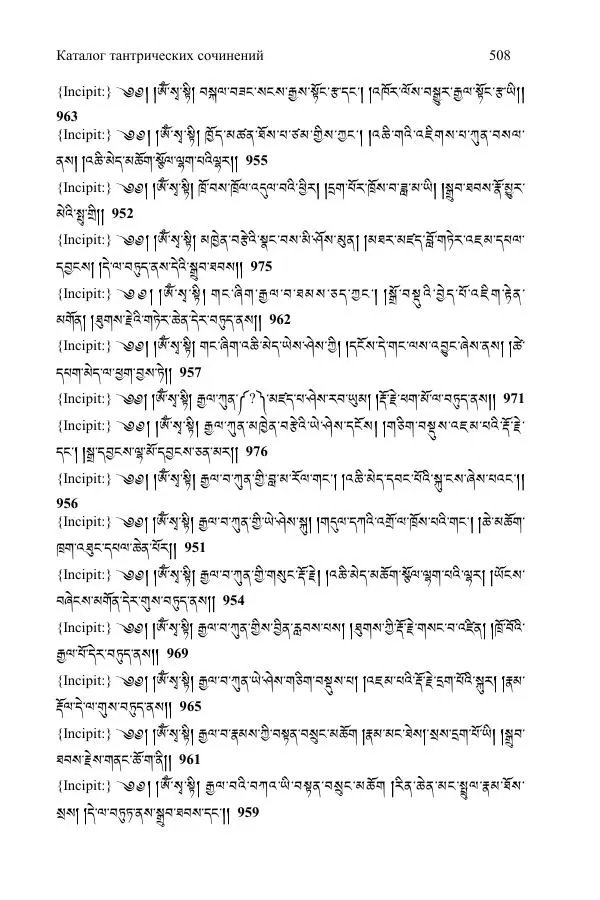 Каталог тантрических сочинений 508
{Incipit:} ༄༅། །ཨོཾ་སྭ་སྟི། བསྐལ་བཟང་སངས་རྒྱས་སྟོང་རྩ་དང་། །འཁོར་ལོས་བསྒྱུར་རྒྱལ་སྟོང་རྩ་ཡི།།
963
{Incipit:} ༄༅། །ཨོཾ་སྭ་སྟི། ཁྱོད་མཚན་ཐོས་པ་ཙམ་གྱིས་ཀྱང་། །འཆི་གའི་འཇིགས་པ་ཀུན་བསལ་
ནས། །འཆི་མེད་མཆོག་སྩོལ་ལྷག་པའི་ལྷར།། 955
{Incipit:} ༄༅། །ཨོཾ་སྭ་སྟི། ཁྲོ་བས་ཁྲོལ་འདུལ་བའི་ཕྱིར། །དྲག་པོར་ཁྲོས་བ་ཟླ་མ་ཡི། །སྒྲུབ་ཐབས་རྣོ་མྱུར་
མེའི་སྤུ་གྲི།། 952
{Incipit:} ༄༅། །ཨོཾ་སྭ་སྟི། མཁྱེན་བརྩེའི་སྣང་བས་མི་ཤེས་མུན། །མཐར་མཛད་བློ་གཏེར་འཇམ་དཔལ་
དབྱངས། །དེ་ལ་བཏུད་ནས་དེའི་སྒྲུབ་ཐབས།། 975
{Incipit:} ༄༅། །ཨོཾ་སྭ་སྟི། གང་ཞིག་རྒྱལ་བ་ཐམས་ཅད་ཀྱང་། །སྤྲོ་བསྡུའི་བྱེད་པོ་འཇིག་རྟེན་
མགོན། །ཐུགས་རྗེའི་གཏེར་ཆེན་དེར་བཏུད་ནས།། 962
{Incipit:} ༄༅། །ཨོཾ་སྭ་སྟི། གང་ཞིག་འཆི་མེད་ཡེས་ཤེས་ཀྱི། །དངོས་དེ་གང་ལས་འབྱུང་ཞེས་ནས། །ཚེ་
དཔག་མེད་ལ་ཕྱག་བྱས་ཏེ།། 957
{Incipit:} ༄༅། །ཨོཾ་སྭ་སྟི། རྒྱལ་ཀུན་༼?༽མཛད་པ་ཤེས་རབ་ཡུམ། །རྡོ་རྗེ་ཕག་མོ་ལ་བཏུད་ནས།། 971
{Incipit:} ༄༅། །ཨོཾ་སྭ་སྟི། རྒྱལ་ཀུན་མཁྱེན་བརྩེའི་ཡེ་ཤེས་དངོས། །གཅིག་བསྡུས་འཇམ་པའི་རྡོ་རྗེ་
དང་། །སྒྲ་དབྱངས་ལྷ་མོ་དབྱངས་ཅན་མར།། 976
{Incipit:} ༄༅། །ཨོཾ་སྭ་སྟི། རྒྱལ་བ་ཀུན་གྱི་བླ་མ་རོལ་གང་། །འཆི་མེད་དབང་པོའི་སྐུ་ངས་ཞེས་པའང་།།
956
{Incipit:} ༄༅། །ཨོཾ་སྭ་སྟི། རྒྱལ་བ་ཀུན་གྱི་ཡེ་ཤེས་སྐུ། །གདུལ་དཀའི་འགྲོ་ལ་ཁྲོས་པའི་གང་། །ཆེ་མཆོག་
ཁྲག་འཐུང་དཔལ་ཆེན་པོར།། 951
{Incipit:} ༄༅། །ཨོཾ་སྭ་སྟི། རྒྱལ་བ་ཀུན་གྱི་གསུང་རྡོ་རྗེ། །འཆི་མེད་མཆོག་སྩོལ་ལྷག་པའི་ལྷར། །ཡོངས་
བཞེངས་མགོན་དེར་གུས་བཏུད་ནས།། 954
{Incipit:} ༄༅། །ཨོཾ་སྭ་སྟི། རྒྱལ་བ་ཀུན་གྱིས་བྱིན་རླབས་པས། །ཐུགས་ཀྱི་རྡོ་རྗེ་གསང་བ་འཛིན། །ཁྲོ་བོའི་
རྒྱལ་པོ་དེར་བཏུད་ནས།། 969
{Incipit:} ༄༅། །ཨོཾ་སྭ་སྟི། རྒྱལ་བ་ཀུན་ཡེ་ཤེས་གཅིག་བསྡུས་པ། །འཇམ་པའི་རྡོ་རྗེ་དྲག་པོའི་སྐུར། །རྣམ་
རྡོལ་དེ་ལ་གུས་བཏུད་ནས།། 965
{Incipit:} ༄༅། །ཨོཾ་སྭ་སྟི། རྒྱལ་བ་རྣམས་ཀྱི་བསྟན་བསྲུང་མཆོག །རྣམ་མང་ཐེས། སྲས་དྲག་པོ་ཡི། །སྒྲུབ་
ཐབས་རྗེས་གནང་ཆོ་ག་ནི།། 961
{Incipit:} ༄༅། །ཨོཾ་སྭ་སྟི། རྒྱལ་བའི་བཀའ་ཡི་བསྟན་བསྲུང་མཆོག །རིན་ཆེན་མང་སྤྲུལ་རྣམ་ཐོས་
སྲས། །དེ་ལ་བཏུཏ་ནས་སྒྲུབ་ཐབས་དང་།། 959